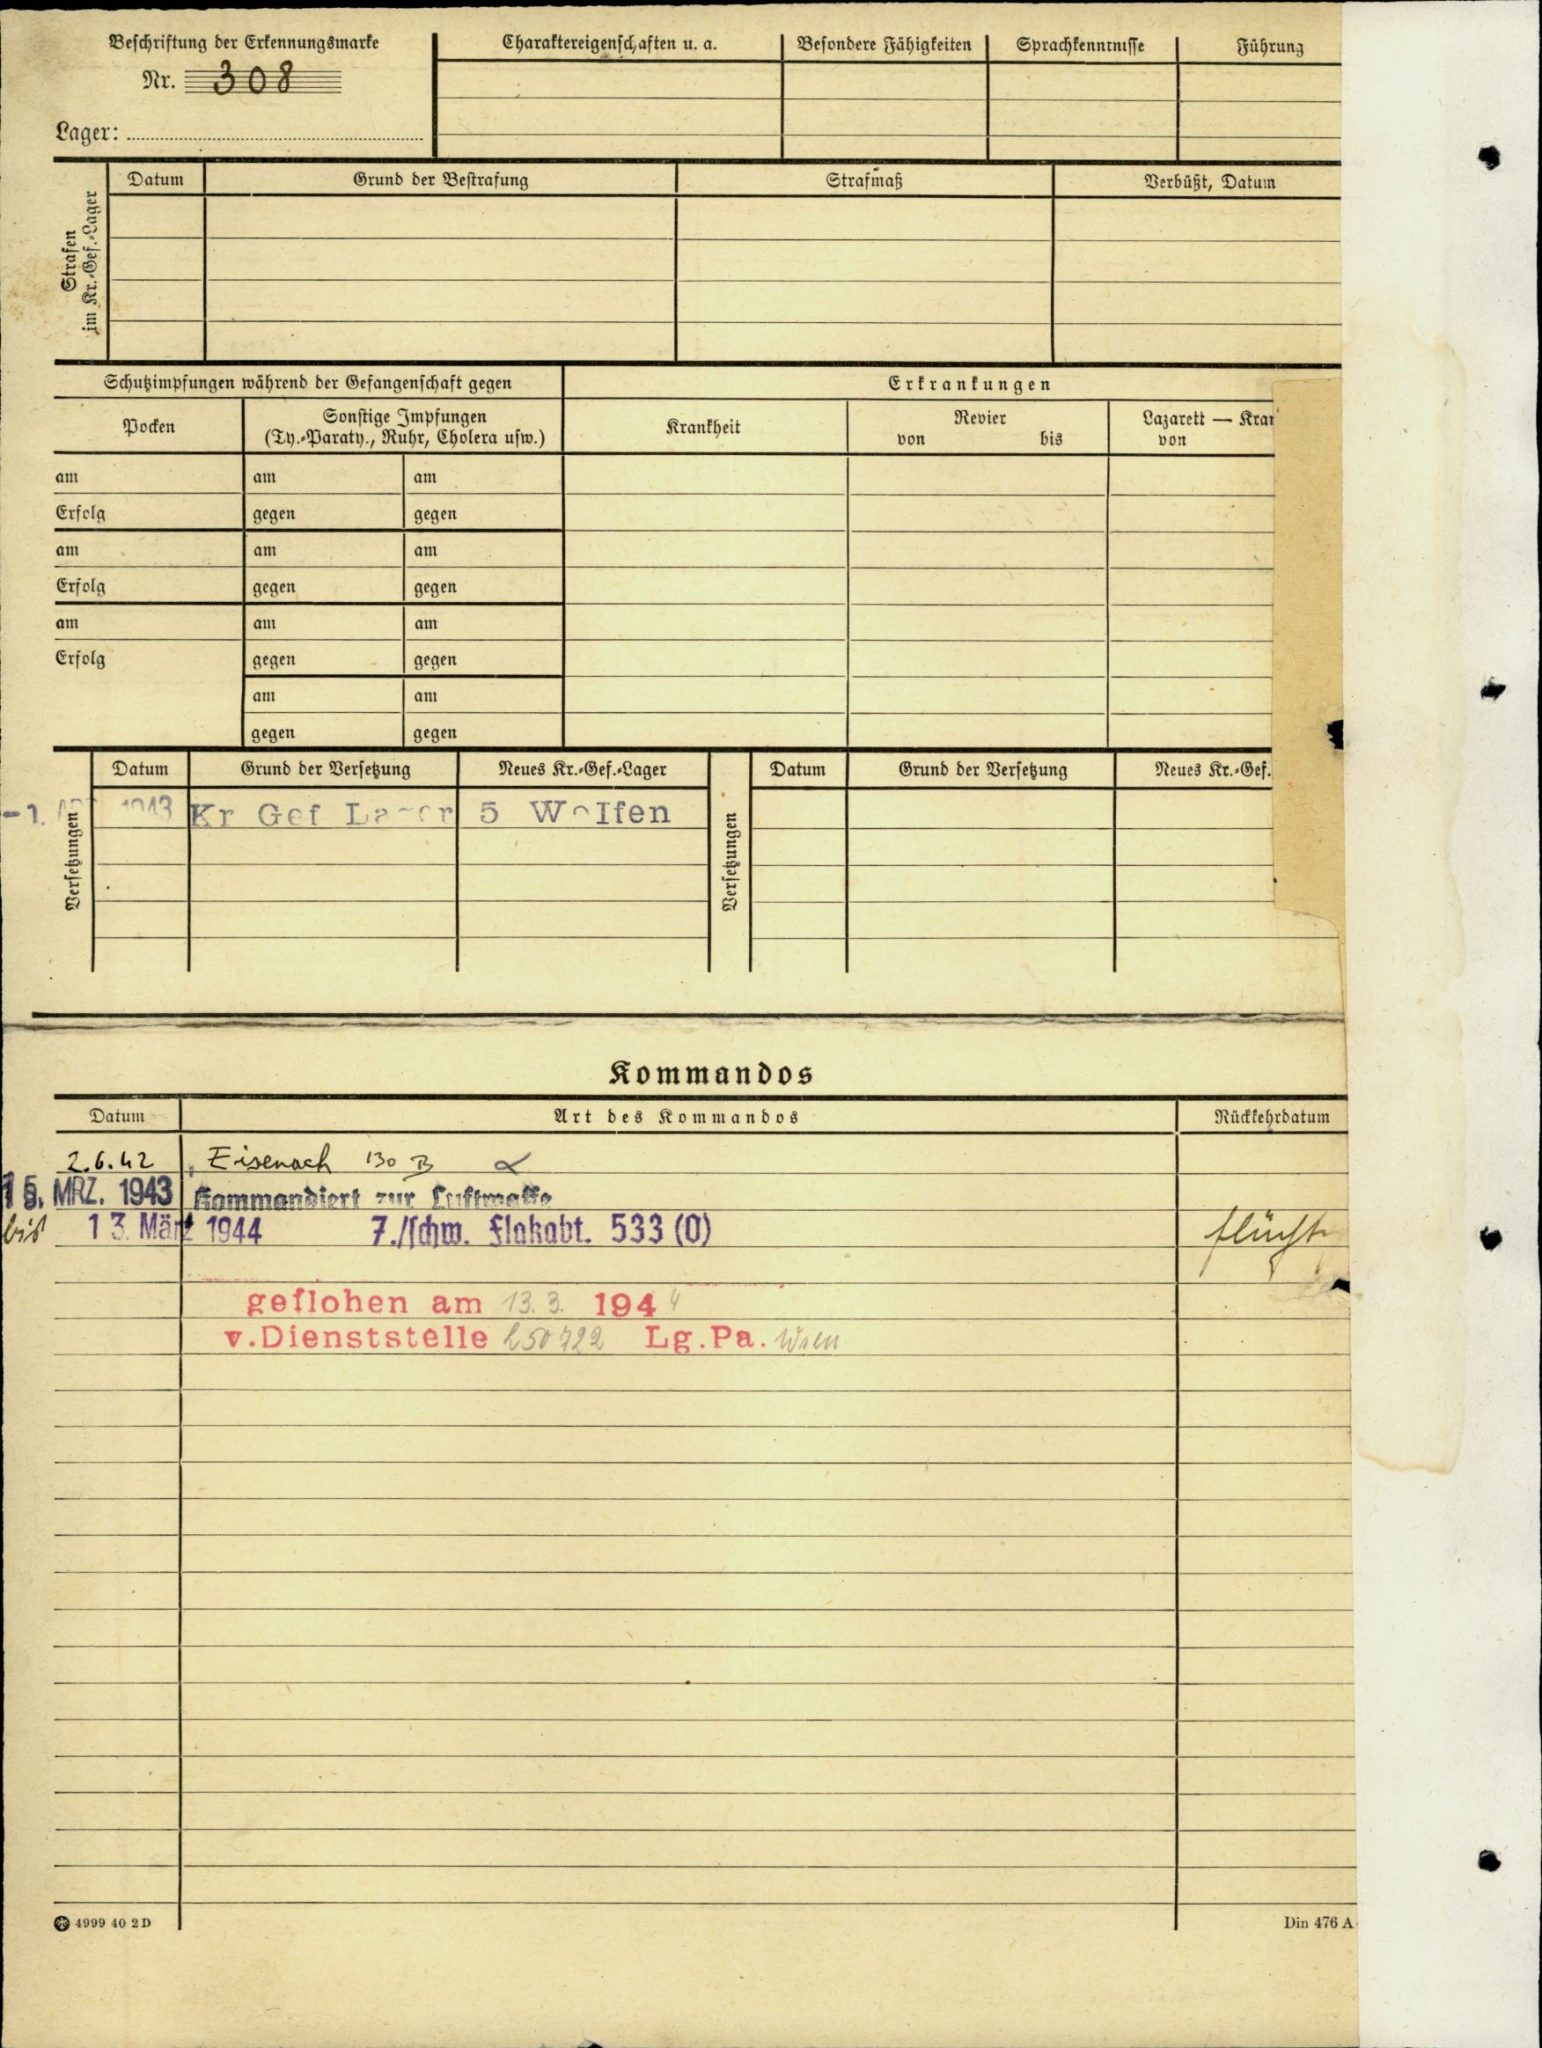 Beschriftung der Erkennungsmarke
Nr. 308
Lager:
Charaktereigenschaften u. a.
Besondere Fähigkeiten
Sprachkenntnisse
Führung
Strafen
im Kr.-Gef.-Lager
Datum
Grund der Bestrafung
Strafmaß
Verbüßt, Datum
Schutzimpfungen während der Gefangenschaft gegen
Erkrankungen
Pocken
Sonstige Impfungen
(Ty.-Paraty., Ruhr, Cholera usw.)
Krankheit
Revier
von bis
Lazarett —
von
am am am
Erfolg gegen gegen
am am am
Erfolg gegen gegen
am am am
Erfolg gegen gegen
am am
gegen gegen
Versetzungen
Datum Grund der Versetzung Neues Kr.-Gef.-Lager
Versetzungen
Datum Grund der Versetzung Neues Kr.-Gef.
-1. 1943 Kr Gef Lager 5 Wolfen
Kommandos
Datum Art des Kommandos Rückkehrdatum
2.6.42 Eisenach 130 B
MRZ. 1943 Kommandiert zur Luftwaffe
bis 13. März 1944 7./schw. Flakabt. 533 (O)
geflohen am 13.3. 1944
v.Dienststelle L50722 Lg.Pa. Wien
4999 40 2 D
Din 476 A